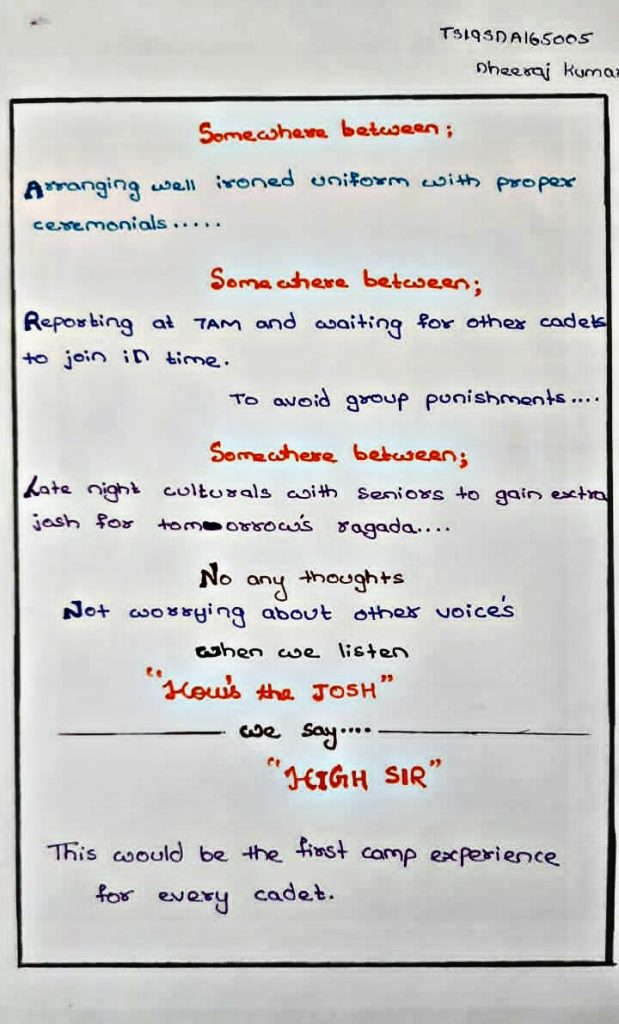 TS19SDA165005
Dheeraj Kumar
Somewhere between;
Arranging well ironed uniform with proper
ceremonials.....
Somewhere between;
Reporting at 7AM and waiting for other cadets
to join in time.
To avoid group punishments....
Somewhere between;
Late night culturals with seniors to gain extra
josh for tomorrow's ragada....
No any thoughts
Not worrying about other voice's
when we listen
"How's the JOSH"
we say....
"HIGH SIR"
This would be the first camp experience
for every cadet.